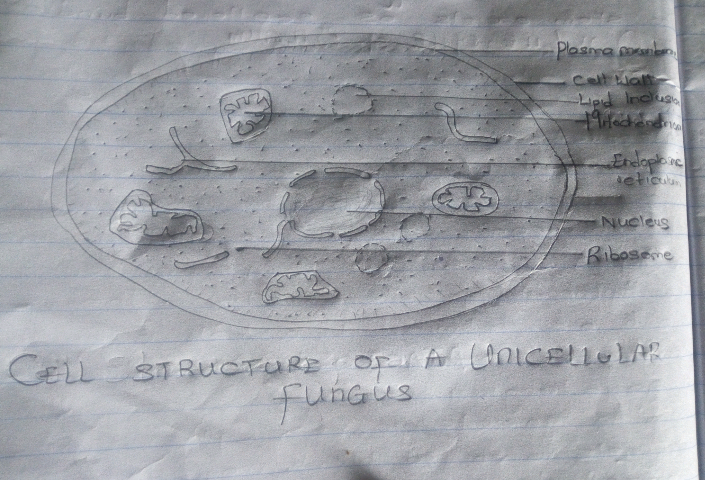 Plasma membra
Cell Wall
Lipid Inclusio
Mitochondrion
Endoplasmic
reticulum
Nucleus
Ribosome
CELL STRUCTURE OF A UNICELLULAR
FUNGUS